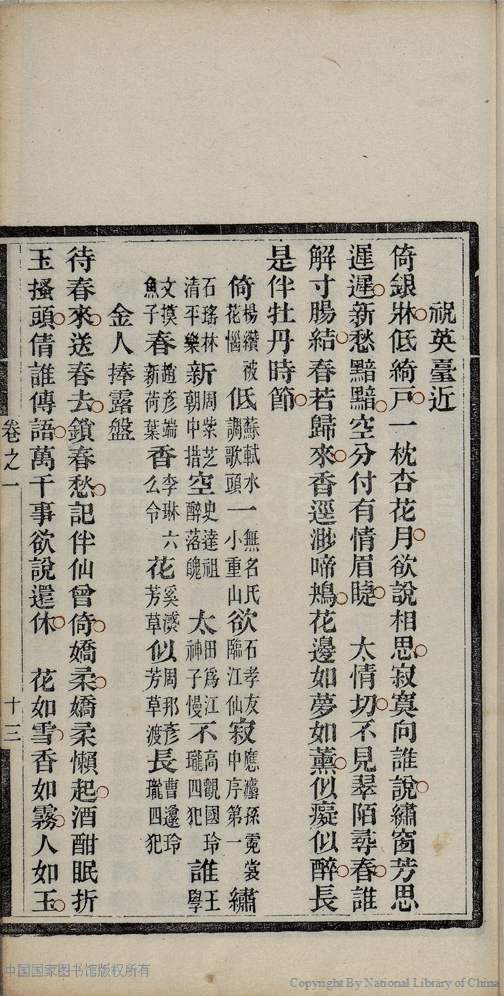 祝英臺近
倚銀牀低綺戶一枕杏花月欲說相思寂寞向誰說繡窗芳思
遲遲新愁黯黯空分付有情眉睫　太情切不見翠陌尋春誰
解寸腸結春若歸來香逕渺啼鴂花邊如夢如薰似癡似醉長
是伴牡丹時節
倚楊纘被花惱低蘇軾水調歌頭一無名氏小重山欲石孝友臨江仙寂應㵯孫霓裳中序第一繡
石瑤林清平樂新周紫芝朝中措空史達祖醉落魄太田爲江神子慢不高觀國玲瓏四犯誰王學
文摸魚子春趙彥端新荷葉香李琳六么令花奚㵄芳草似周邦彥芳草渡長曹邍玲瓏四犯
金人捧露盤
待春來送春去鎖春愁記伴仙曾倚嬌柔嬌柔懶起酒酣眠折
玉搔頭倩誰傳語萬千事欲說還休　花如雪香如霧人如玉
卷之一
十三
中国国家图书馆版权所有
Copyright By National Library of China